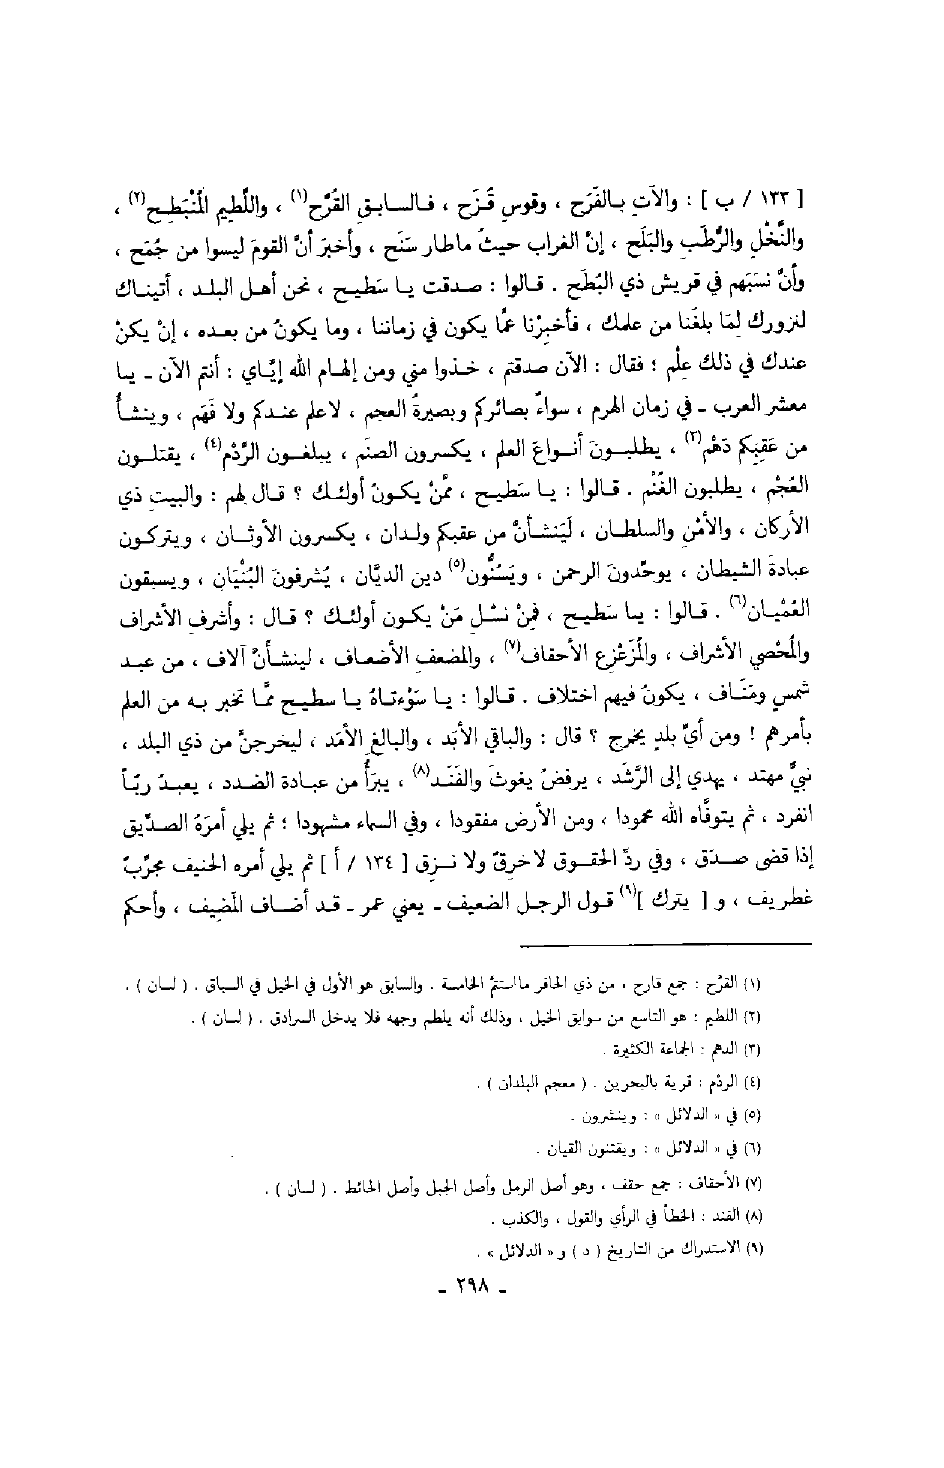 [ ١٣٣ / ب ] : والآتِ بالفَرَح ، وقوسِ قُزَح ، فالسابقِ القُرَّح(١) ، واللَّطيمِ المُنْبَطِح(٢) ،
والنَّخْلِ والرُّطَبِ والبَلَح ، إنّ الغراب حيثُ ماطار سَنَح ، وأخبَرَ أنَّ القومَ ليسوا من جُمَح ،
وأنَّ نسَبَهم في قريش ذي البُطَح . قالوا : صدقت يا سَطيح ، نحن أهل البلد ، أتيناك
لنزورك لمَا بلغَنا من علمك ، فأخبِرْنا عمَّا يكون في زماننا ، وما يكونُ من بعده ، إنْ يكنْ
عندك في ذلك عِلْم ؛ فقال : الآن صدقتم ، خذوا مني ومن إلهام الله إيَّاي : أنتم الآن - يا
معشر العرب - في زمان الهرم ، سواءٌ بصائركم وبصيرةُ العجم ، لاعلم عندكم ولا فَهَم ، وينشأُ
من عَقِبِكم دَهْم(٣) ، يطلبونَ أنواعَ العلم ، يكسرون الصنَم ، يبلغون الرَّدْم(٤) ، يقتلون
العُجْم ، يطلبون الغُنْم . قالوا : يا سَطيح ، ممَّنْ يكونُ أولئك ؟ قال لهم : والبيتِ ذي
الأركان ، والأمْنِ والسلطان ، لَيَنشأنَّ من عقبكم ولدان ، يكسرون الأوثان ، ويتركون
عبادةَ الشيطان ، يوحِّدونَ الرحمن ، ويَسُنُّون(٥) دين الديَّان ، يُشرفونَ البُنْيَان ، ويسبقون
العُمْيان(٦) . قالوا : يا سَطيح ، فمِنْ نسْلِ مَنْ يكون أولئك ؟ قال : وأشرفِ الأشراف
والمُحْصي الأشراف ، والمُزَعْزِعِ الأحقاف(٧) ، والمضعفِ الأضعاف ، لينشأنَّ آلاف ، من عبد
شمسٍ ومَنَاف ، يكونُ فيهم اختلاف . قالوا : يا سَوْءتاهُ يا سطيح ممَّا تخبر به من العلم
بأمرهم ! ومن أيِّ بلدٍ يخرج ؟ قال : والباقي الأبَد ، والبالغِ الأمَد ، ليخرجنَّ من ذي البلد ،
نبيٌّ مهتد ، يهدي إلى الرَّشَد ، يرفضُ يغوثَ والفَنَد(٨) ، يبرأُ من عبادة الضدد ، يعبدُ ربّاً
انفرد ، ثم يتوفَّاه الله محمودا ، ومن الأرض مفقودا ، وفي السماء مشهودا ؛ ثم يلي أمرَهُ الصدّيق
إذا قضى صدَق ، وفي ردِّ الحقوق لاخرِقٌ ولا نزِق [ ١٣٤ / أ ] ثم يلي أمره الحنيف مجرِّبٌ
غطريف ، و [ يترك ](٩) قول الرجل الضعيف - يعني عمر - قد أضاف المُضِيف ، وأحكم
(١) القرَّح : جمع قارح ، من ذي الحافر مااستتمَّ الخامسة . والسابق هو الأول في الخيل في السباق . ( لسان ) .
(٢) اللطيم : هو التاسع من سوابق الخيل ، وذلك أنه يلطم وجهه فلا يدخل السرادق . ( لسان ) .
(٣) الدهم : الجماعة الكثيرة .
(٤) الردْم : قرية بالبحرين . ( معجم البلدان ) .
(٥) في « الدلائل » : وينشرون .
(٦) في « الدلائل » : ويقتنون القيان .
(٧) الأحقاف : جمع حقف ، وهو أصل الرمل وأصل الجبل وأصل الحائط . ( لسان ) .
(٨) الفند : الخطأ في الرأي والقول ، والكذب .
(٩) الاستدراك من التاريخ ( د ) و« الدلائل » .
- ٢٩٨ -